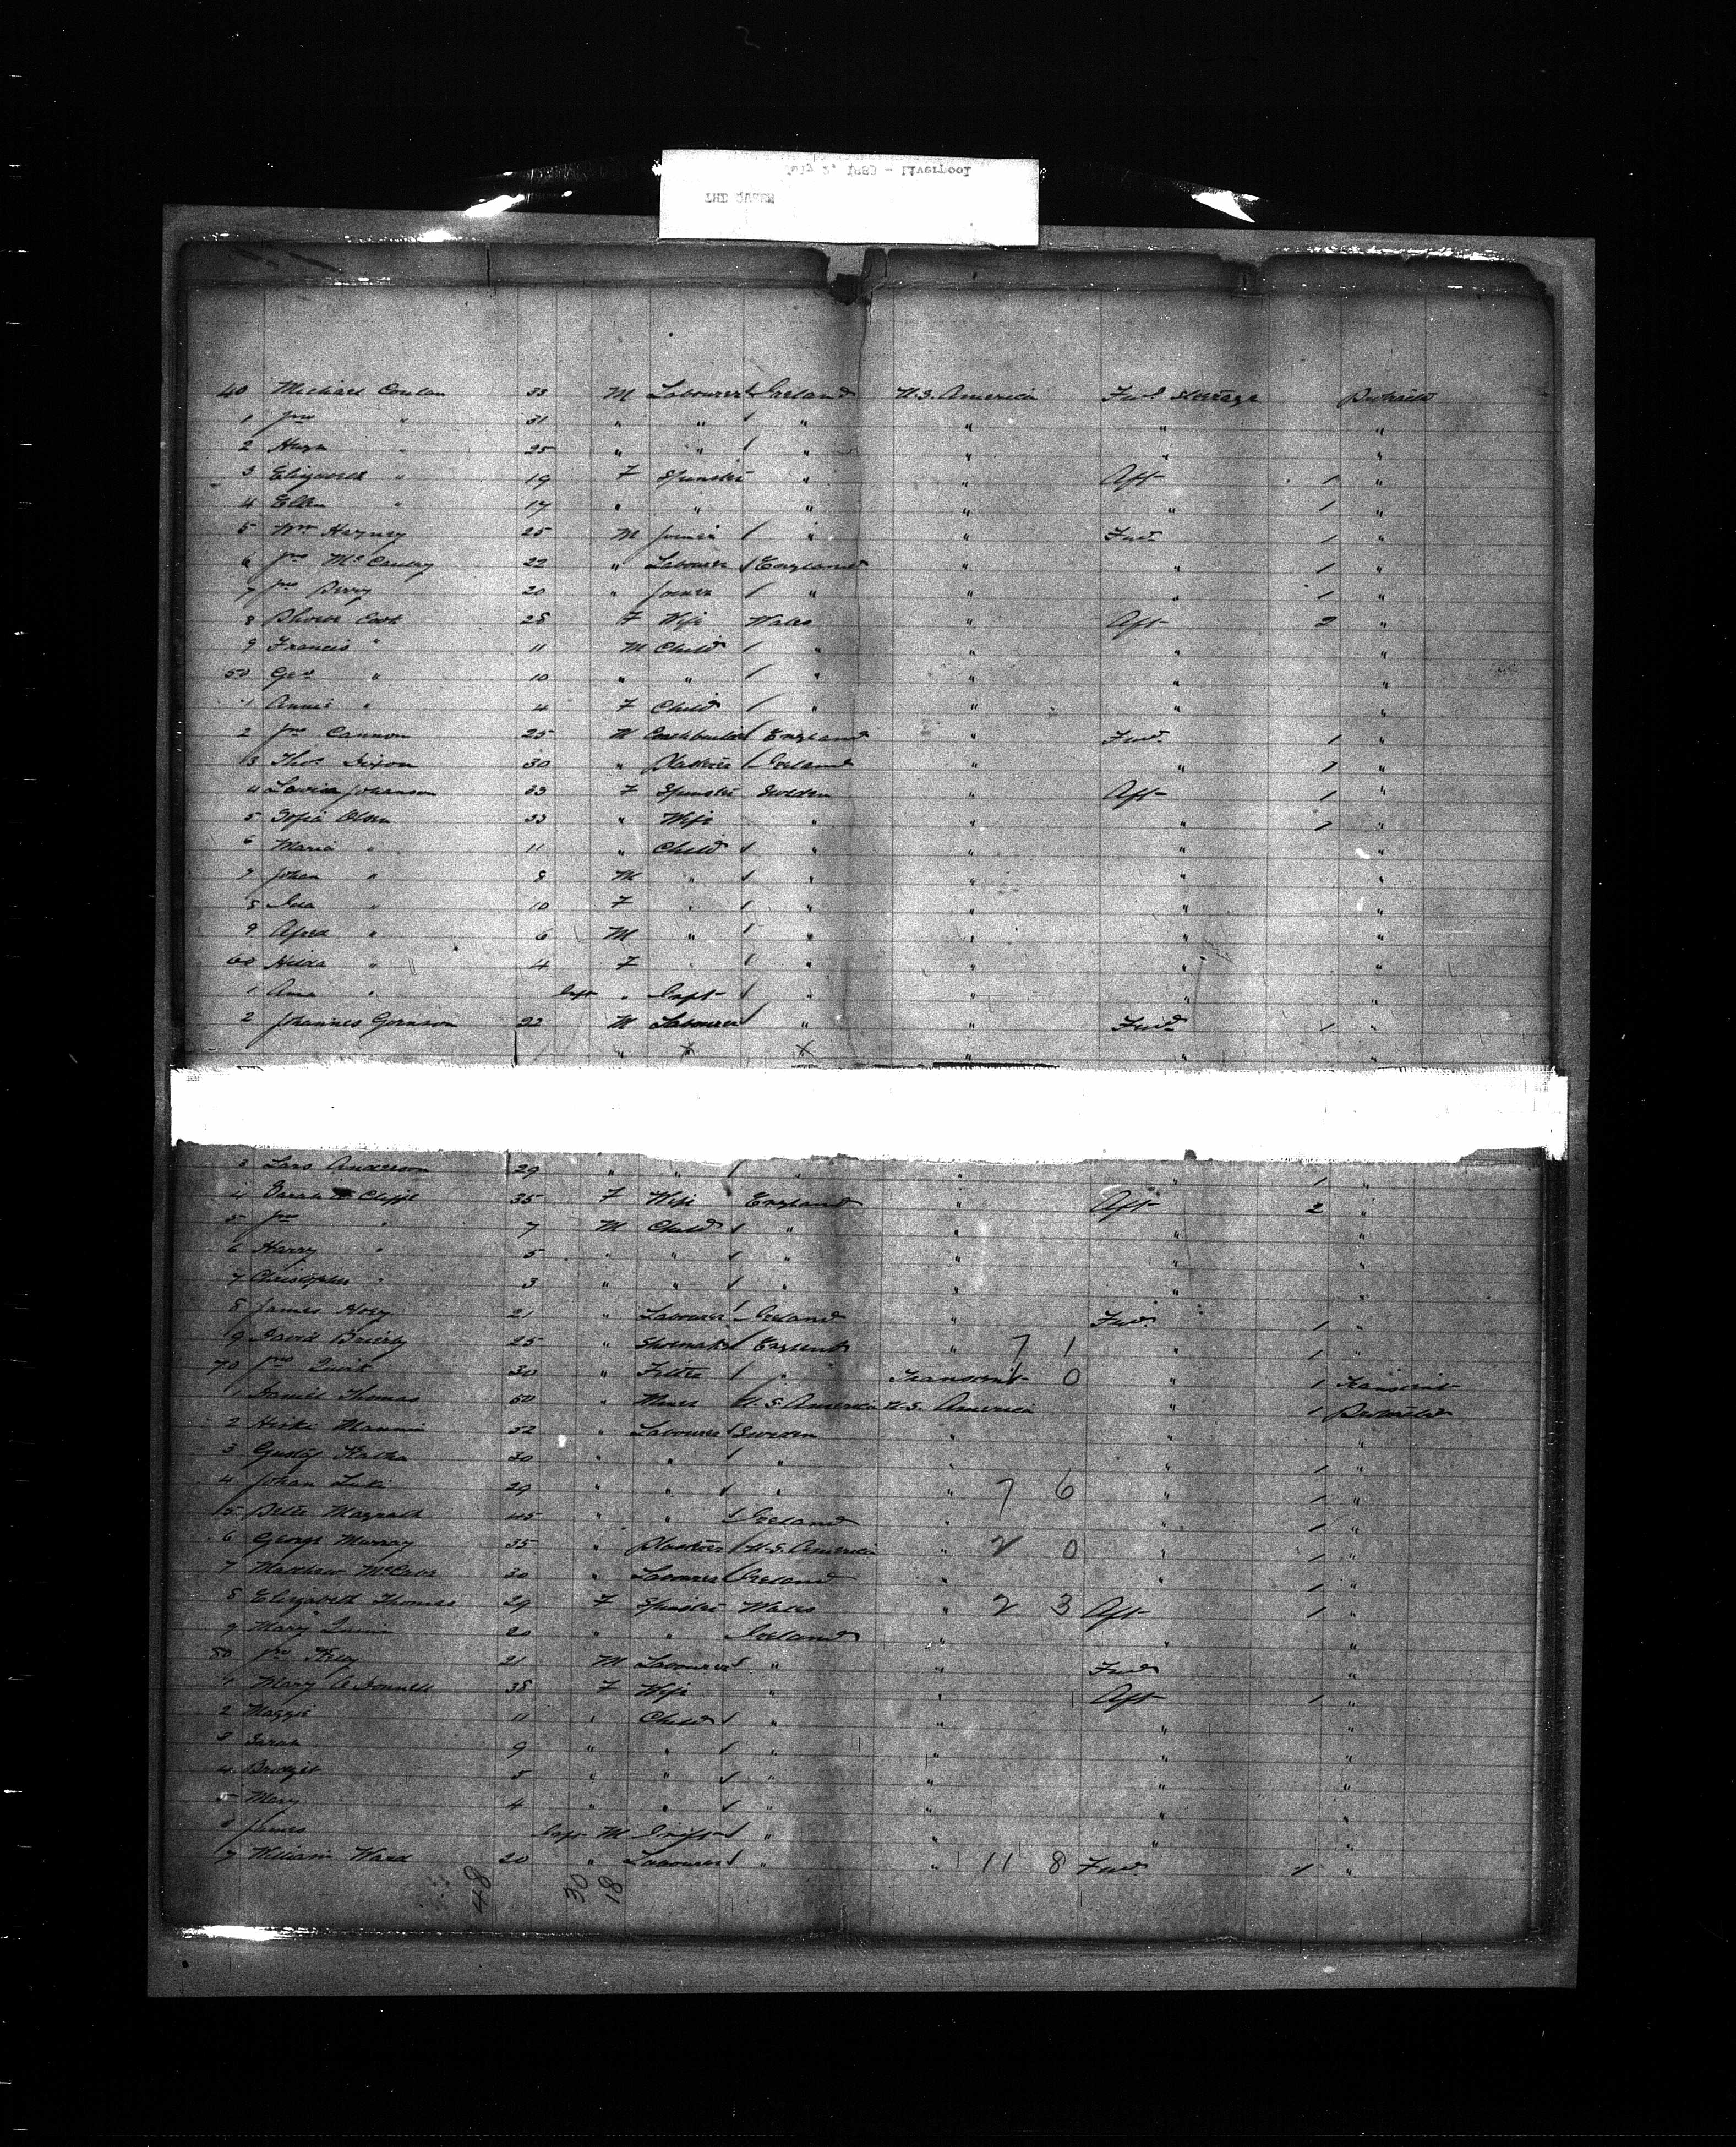 40 Michael Conlon 33 M Labourer Ireland U.S. America Fwd Steerage Protracted
1 Jno " 31 " " " " " "
2 Hugh " 25 " " " " " "
3 Elizabeth " 19 F Spinster " " Aft 1 "
4 Ellen " 17 " " " " " 1 "
5 Wm Harvey 25 M Joiner " " Fwd 1 "
6 Jno McCauley 22 " Labourer England " " 1 "
7 Jno Berry 20 " Joiner " " " 1 "
8 Phoebe Cook 28 F Wife Wales " Aft 2 "
9 Francis " 11 M Child " " " "
50 Geo " 10 " " " " " "
1 Annie " 4 F Child " " " "
2 Jno Cannon 25 M Coachbuilder England " Fwd 1 "
3 Thos Dixon 30 " Plasterer Ireland " " 1 "
4 Lovisa Johanson 33 F Spinster Sweden " Aft 1 "
5 Sofia Olsen 33 " Wife " " " 1 "
6 Maria " 11 " Child " " " "
7 Johan " 8 M " " " " "
8 Ida " 10 F " " " " "
9 Alfred " 6 M " " " " "
60 Hilda " 4 F " " " " "
1 Ana " Inft " Inft " " " "
2 Johannes Gornson 22 M Labourer " " Fwd 1 "
" " "
3 Lars Anderson 29 " " " " " 1 "
4 Sarah Cliffe 35 F Wife England " Aft 2 "
5 Jno " 7 M Child " " " "
6 Harry " 5 " " " " " "
7 Christopher " 3 " " " " " "
8 James Hoey 21 " Labourer Ireland " Fwd 1 "
9 David Brierly 25 " Shoemaker England " 7 1 " 1 "
70 Jno Quirk 30 " Fitter " Transient 0 " 1 Transient
1 Daniel Thomas 50 " Miner U.S. America U.S. America " 1 Protracted
2 Heiki Mannin 52 " Labourer Sweden " " "
3 Gustaf 30 " " " " " 1 "
4 Johan 29 " " " " 7 6 " 1 "
5 Peter Magrath 45 " " Ireland " " 1 "
6 George Murray 35 " Plasterer U.S. America " 2 0 " 1 "
7 Matthew McCabe 30 " Labourer Ireland " " 1 "
8 Elizabeth Thomas 29 F Spinster Wales " 2 3 Aft 1 "
9 Mary Quinn 20 " " Ireland " " "
80 Jno Kelly 21 M Labourer " " Fwd "
1 Mary O'Donnell 38 F Wife " " Aft 1 "
2 Maggie 11 " Child " " " "
3 Sarah 9 " " " " " "
4 Bridget 5 " " " " " "
5 Mary 4 " " " " " "
6 James Inft M Infant " " " "
7 William Ward 20 " Labourer " " 11 8 Fwd 1 "
48 30 18